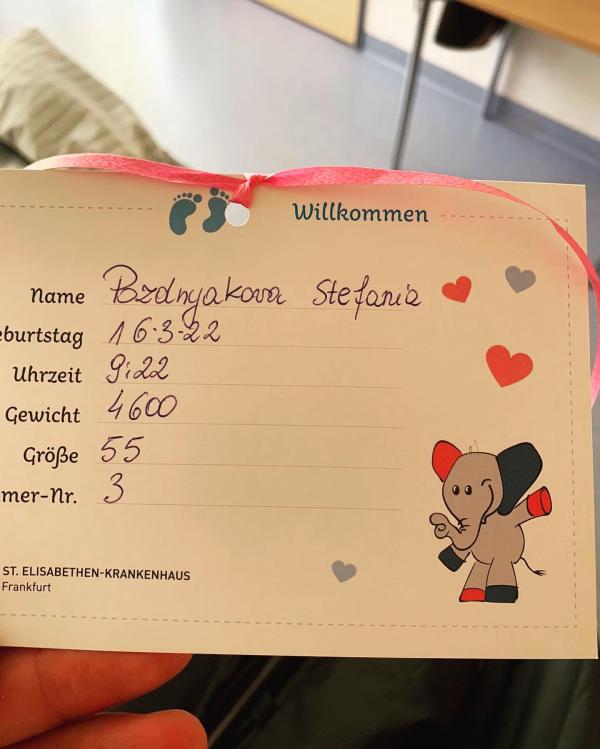 Willkommen
Name Bzdnyakova Stefania
eburtstag 16.3.22
Uhrzeit 9:22
Gewicht 4600
Größe 55
mer-Nr. 3
ST. ELISABETHEN-KRANKENHAUS
Frankfurt